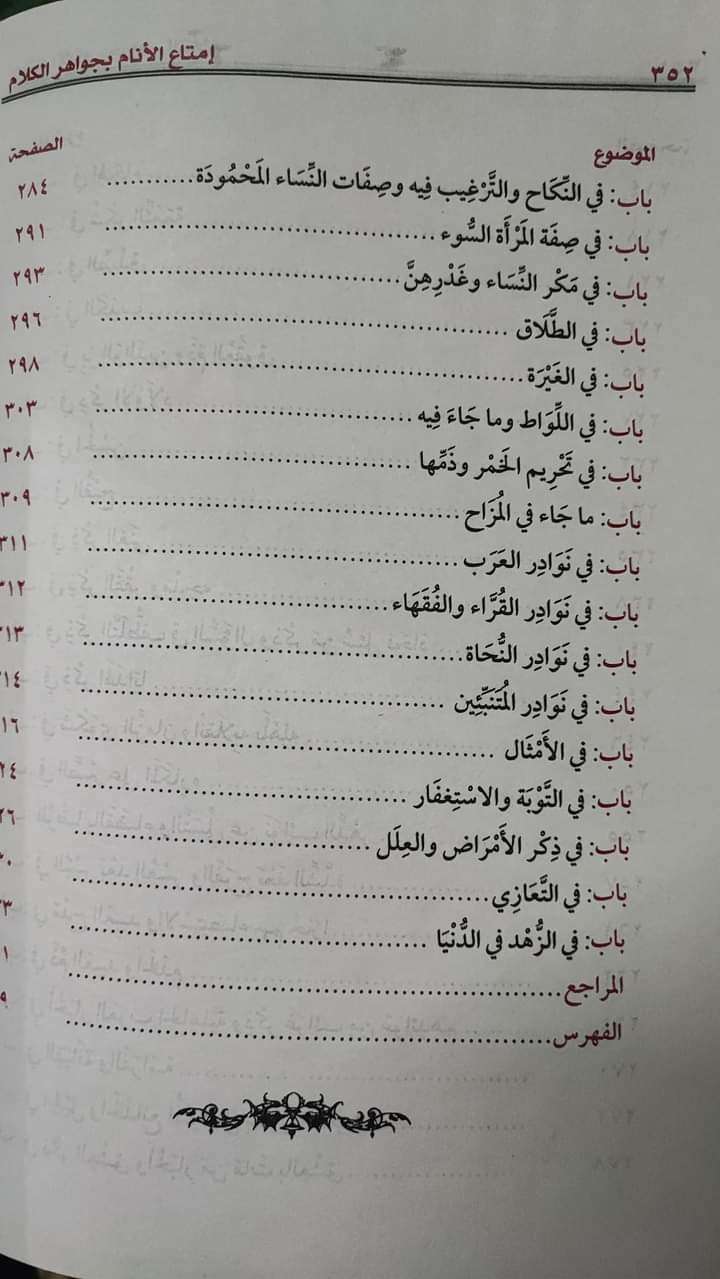 إمتاع الأنام بجواهر الكلام
٣٥٢
الموضوع الصفحة
باب: في النِّكَاح والتَّرْغِيب فِيه وصِفَات النِّسَاء المَحْمُودَة........... ٢٨٤
باب: في صِفَة المَرْأَة السُّوء ...................................... ٢٩١
باب: في مَكْر النِّسَاء وغَدْرِهِنَّ................................... ٢٩٣
باب: في الطَّلَاق ............................................... ٢٩٦
باب: في الغَيْرَة................................................. ٢٩٨
باب: في اللِّوَاط وما جَاءَ فِيه .................................... ٣٠٣
باب: في تَحْرِيم الخَمْر وذَمِّها .................................... ٣٠٨
باب: ما جَاء في المُزَاح........................................ ٣٠٩
باب: في نَوَادِر العَرَب......................................... ٣١١
باب: في نَوَادِر القُرَّاء والفُقَهَاء................................ ٣١٢
باب: في نَوَادِر النُّحَاة.........................................
باب: في نَوَادِر المُتَنَبِّئِين .......................................
باب: في الأَمْثَال ..............................................
باب: في التَّوْبَة والاسْتِغفَار .....................................
باب: في ذِكْر الأَمْرَاض والعِلَل ..................................
باب: في التَّعَازِي..............................................
باب: في الزُّهْد في الدُّنْيَا .......................................
المراجع......................................................
الفهرس......................................................